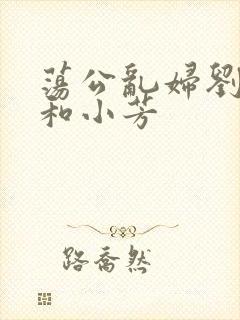 蕩公亂婦劉
和小芳
路喬然